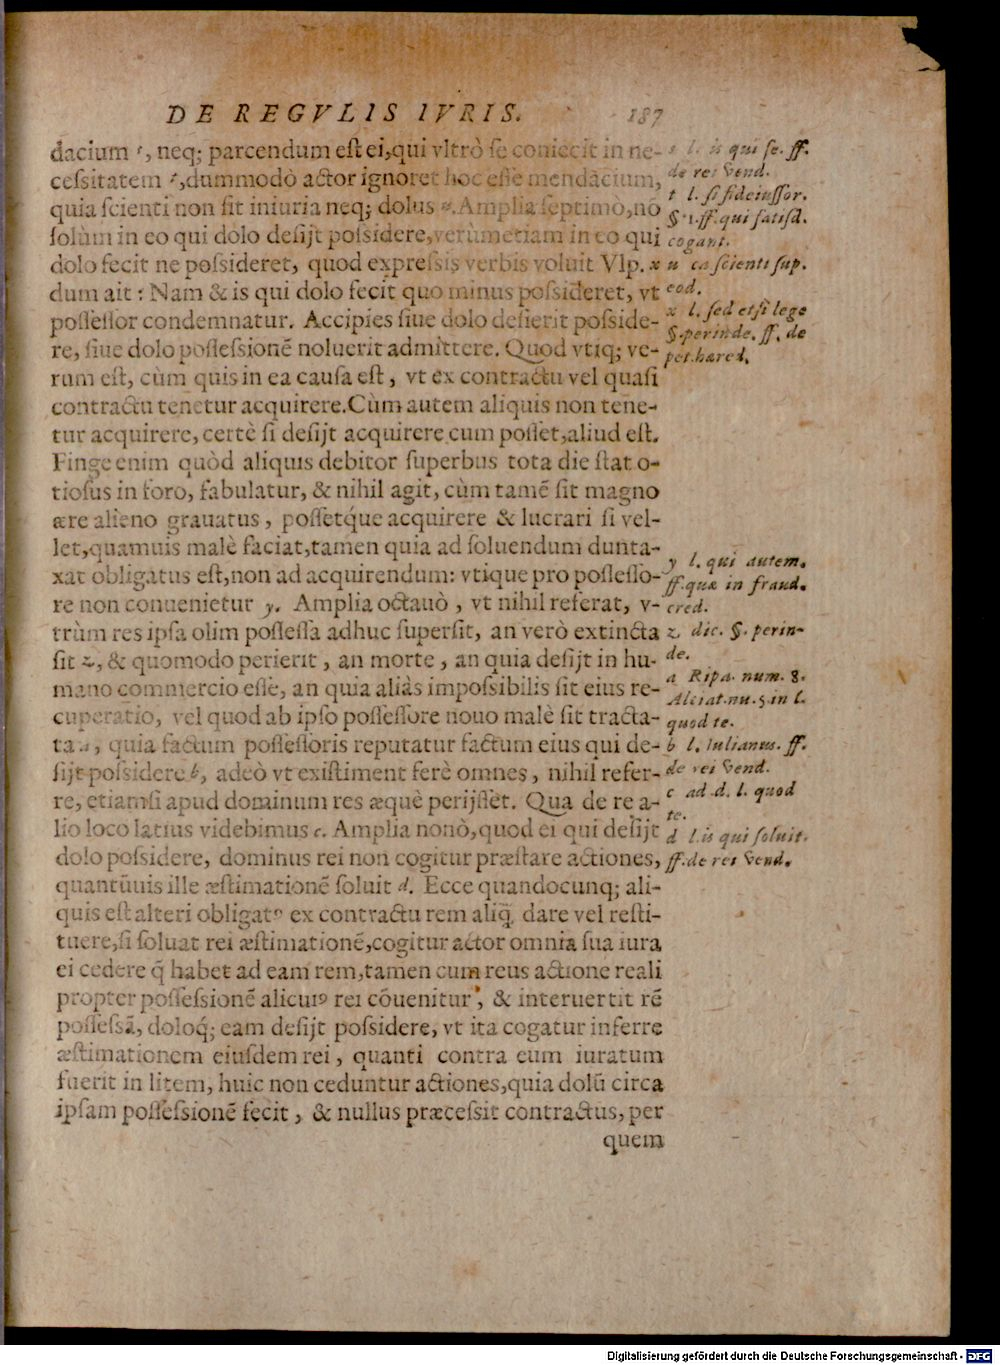 DE REGVLIS IVRIS. 187
dacium s, neq; parcendum est ei, qui vltrò se coniecit in ne-
cessitatem t, dummodò actor ignoret hoc esse mendacium,
quia scienti non fit iniuria neq; dolus u. Amplia septimò, nō
solùm in eo qui dolo desijt possidere, verùmetiam in eo qui
dolo fecit ne possideret, quod expressis verbis voluit Vlp. x
dum ait: Nam & is qui dolo fecit quo minus possideret, vt
possessor condemnatur. Accipies siue dolo desierit posside-
re, siue dolo possessionē noluerit admittere. Quod vtiq; ve-
rum est, cùm quis in ea causa est, vt ex contractu vel quasi
contractu tenetur acquirere. Cùm autem aliquis non tene-
tur acquirere, certè si desijt acquirere cum posset, aliud est.
Finge enim quòd aliquis debitor superbus tota die stat o-
tiosus in foro, fabulatur, & nihil agit, cùm tamē sit magno
ære alieno grauatus, possetq́ue acquirere & lucrari si vel-
let, quamuis malè faciat, tamen quia ad soluendum dunta-
xat obligatus est, non ad acquirendum: vtique pro possesso-
re non conuenietur y. Amplia octauò, vt nihil referat, v-
trùm res ipsa olim possessa adhuc supersit, an verò extincta
sit z, & quomodo perierit, an morte, an quia desijt in hu-
mano commercio esse, an quia aliàs impossibilis sit eius re-
cuperatio, vel quod ab ipso possessore nouo malè sit tracta-
ta a, quia factum possessoris reputatur factum eius qui de-
sijt possidere b, adeò vt existiment ferè omnes, nihil refer-
re, etiamsi apud dominum res æquè perijsset. Qua de re a-
lio loco latius videbimus c. Amplia nonò, quod ei qui desijt
dolo possidere, dominus rei non cogitur præstare actiones,
quantūuis ille æstimationē soluit d. Ecce quandocunq; ali-
quis est alteri obligatꝰ ex contractu rem aliq̄ dare vel resti-
tuere, si soluat rei æstimationē, cogitur actor omnia sua iura
ei cedere q̄ habet ad eam rem, tamen cum reus actione reali
propter possessionē alicuiꝰ rei cōuenitur, & interuertit rē
possessā, doloq́; eam desijt possidere, vt ita cogatur inferre
æstimationem eiusdem rei, quanti contra eum iuratum
fuerit in litem, huic non ceduntur actiones, quia dolū circa
ipsam possessionē fecit, & nullus præcessit contractus, per
quem
s l. is qui se. ff.
de rei vend.
t l. si fideiussor.
§. 1. ff. qui satisd.
cogant.
u ca scienti sup.
eod.
x l. sed etsi lege
§. perinde. ff. de
pet. hæred.
y l. qui autem.
ff. quæ in fraud.
cred.
z dic. §. perin-
de.
a Ripa. num. 8.
Alciat. nu. 5. in l.
quod te.
b l. Iulianus. ff.
de rei vend.
c ad d. l. quod
te.
d l. is qui soluit.
ff. de rei vend.
Digitalisierung gefördert durch die Deutsche Forschungsgemeinschaft - DFG